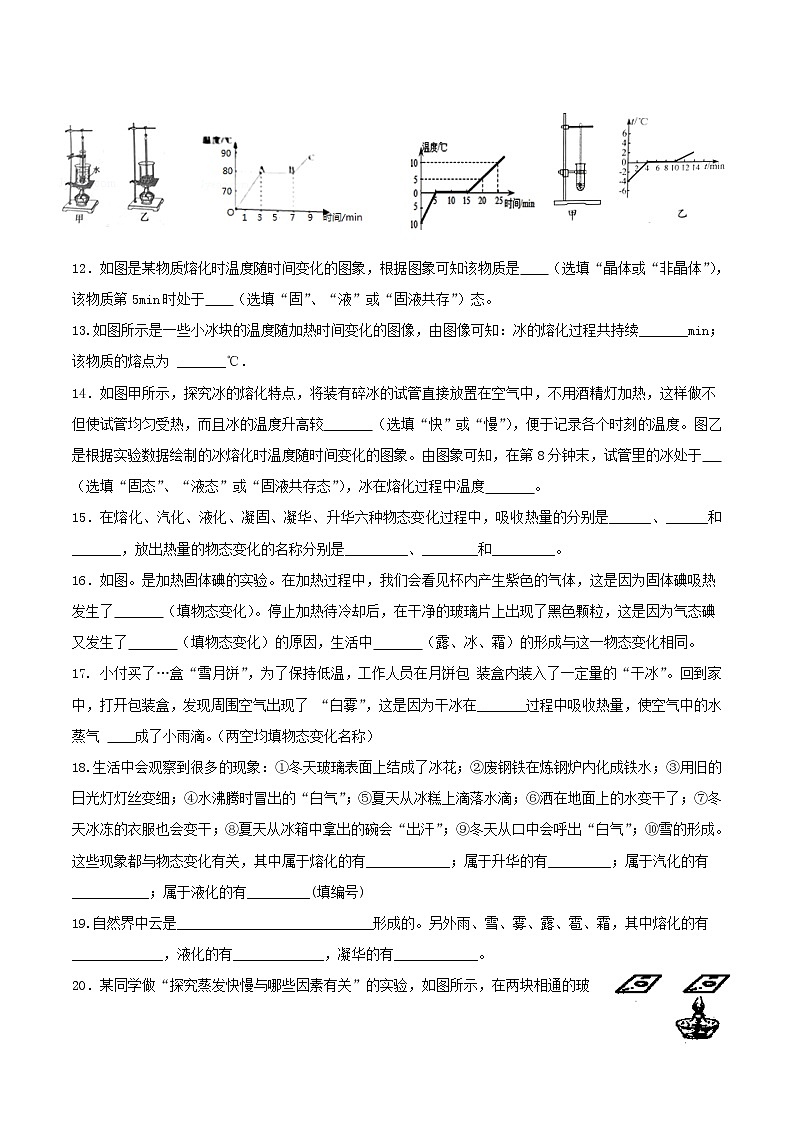 水
甲
乙
温度/℃
90
80
70
O
A
B
C
1 3 5 7 9 时间/min
温度/℃
10
5
0
5
10
5 10 15 20 25 时间/min
甲
t/℃
6
4
2
0
-2
-4
-6
2 4 6 8 10 12 14 t/min
乙
12．如图是某物质熔化时温度随时间变化的图象，根据图象可知该物质是____（选填“晶体或“非晶体”），
该物质第 5min时处于____（选填“固”、“液”或“固液共存”）态。
13.如图所示是一些小冰块的温度随加热时间变化的图像，由图像可知：冰的熔化过程共持续_______min；
该物质的熔点为 _______℃．
14．如图甲所示，探究冰的熔化特点，将装有碎冰的试管直接放置在空气中，不用酒精灯加热，这样做不
但使试管均匀受热，而且冰的温度升高较_______（选填“快”或“慢”），便于记录各个时刻的温度。图乙
是根据实验数据绘制的冰熔化时温度随时间变化的图象。由图象可知，在第 8 分钟末，试管里的冰处于___
（选填“固态”、“液态”或“固液共存态”），冰在熔化过程中温度_______。
15．在熔化、汽化、液化、凝固、凝华、升华六种物态变化过程中，吸收热量的分别是______、______和
_______，放出热量的物态变化的名称分别是_________、________和_________。
16．如图。是加热固体碘的实验。在加热过程中，我们会看见杯内产生紫色的气体，这是因为固体碘吸热
发生了_______（填物态变化）。停止加热待冷却后，在干净的玻璃片上出现了黑色颗粒，这是因为气态碘
又发生了_______（填物态变化）的原因，生活中_______（露、冰、霜）的形成与这一物态变化相同。
17．小付买了…盒“雪月饼”，为了保持低温，工作人员在月饼包 装盒内装入了一定量的“干冰”。回到家
中，打开包装盒，发现周围空气出现了 “白雾”，这是因为干冰在_______过程中吸收热量，使空气中的水
蒸气 ____成了小雨滴。（两空均填物态变化名称）
18.生活中会观察到很多的现象：①冬天玻璃表面上结成了冰花；②废钢铁在炼钢炉内化成铁水；③用旧的
日光灯灯丝变细；④水沸腾时冒出的“白气”；⑤夏天从冰糕上滴落水滴；⑥洒在地面上的水变干了；⑦冬
天冰冻的衣服也会变干；⑧夏天从冰箱中拿出的碗会“出汗”；⑨冬天从口中会呼出“白气”；⑩雪的形成。
这些现象都与物态变化有关，其中属于熔化的有____________；属于升华的有_________；属于汽化的有
___________；属于液化的有_________(填编号)
19.自然界中云是____________________________形成的。另外雨、雪、雾、露、雹、霜，其中熔化的有
_____________，液化的有_____________，凝华的有____________。
20．某同学做“探究蒸发快慢与哪些因素有关”的实验，如图所示，在两块相通的玻